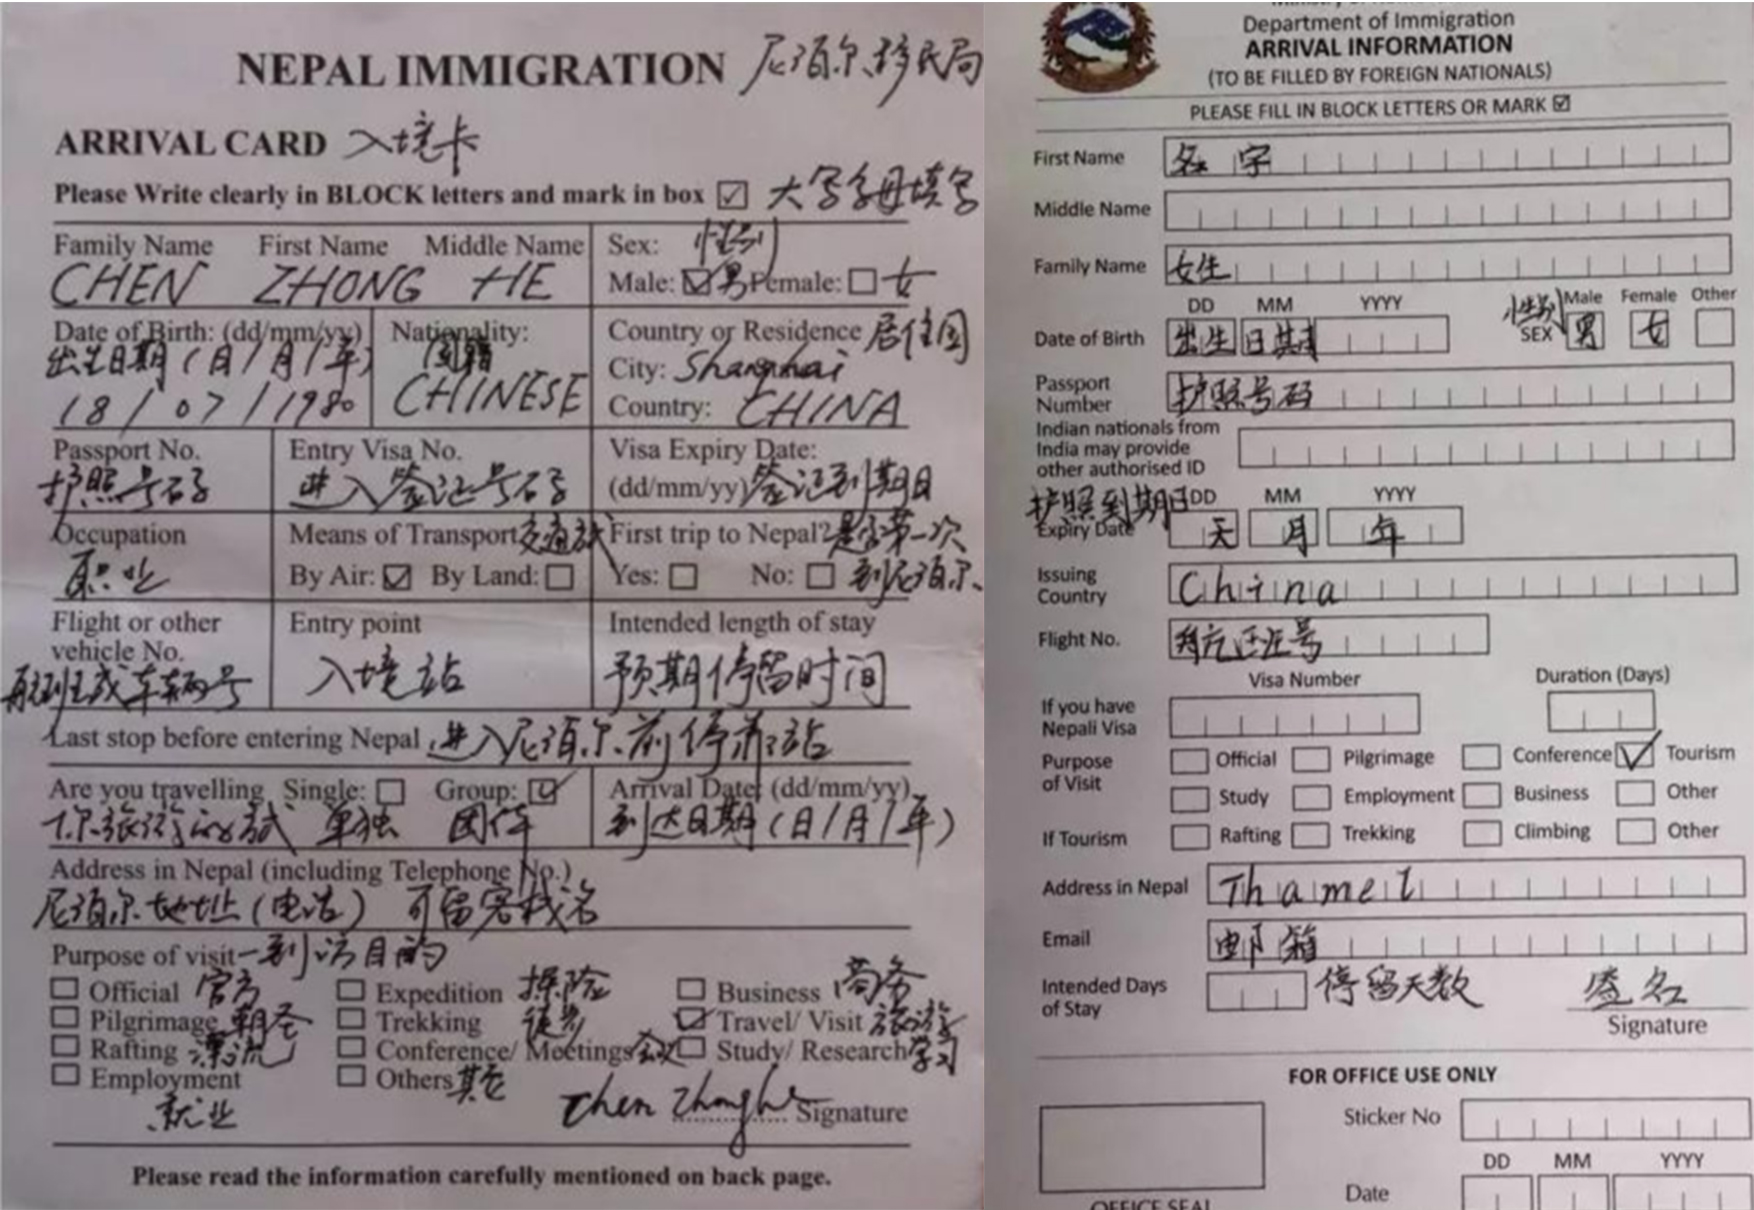 NEPAL IMMIGRATION 尼泊尔移民局
ARRIVAL CARD 入境卡
Please Write clearly in BLOCK letters and mark in box ☑ 大写字母填写
Family Name First Name Middle Name
CHEN ZHONG HE
Sex: 性别
Male: ☑ 男 Female: ☐ 女
Date of Birth: (dd/mm/yy)
出生日期(日/月/年)
18/07/1980
Nationality:
国籍
CHINESE
Country or Residence 居住国
City: Shanghai
Country: CHINA
Passport No.
护照号码
Entry Visa No.
进入签证号码
Visa Expiry Date:
(dd/mm/yy) 签证到期日
Occupation
职业
Means of Transport 交通
By Air: ☑ By Land: ☐
First trip to Nepal? 是否第一次
Yes: ☐ No: ☐ 到尼泊尔
Flight or other
vehicle No.
航班或车辆号
Entry point
入境站
Intended length of stay
预期停留时间
Last stop before entering Nepal 进入尼泊尔前停靠站
Are you travelling Single: ☐ Group: ☑
你旅游的 单独 团体
Arrival Date: (dd/mm/yy)
到达日期(日/月/年)
Address in Nepal (including Telephone No.)
尼泊尔地址(电话) 可留客栈名
Purpose of visit-到访目的
☐ Official 官方 ☐ Expedition 探险 ☐ Business 商务
☐ Pilgrimage 朝圣 ☐ Trekking 徒步 ☑ Travel/ Visit 旅游
☐ Rafting 漂流 ☐ Conference/ Meetings 会议 ☐ Study/ Research 学习
☐ Employment ☐ Others 其它
就业
Chen Zhonghe Signature
Please read the information carefully mentioned on back page.
Department of Immigration
ARRIVAL INFORMATION
(TO BE FILLED BY FOREIGN NATIONALS)
PLEASE FILL IN BLOCK LETTERS OR MARK ☑
First Name 名字
Middle Name
Family Name 女生
DD MM YYYY 性别 Male Female Other
Date of Birth 出生日期 SEX 男 女
Passport
Number 护照号码
Indian nationals from
India may provide
other authorised ID
护照到期日 DD MM YYYY
Expiry Date 天 月 年
Issuing
Country China
Flight No. 号
Visa Number Duration (Days)
If you have
Nepali Visa
Purpose
of Visit
☐ Official ☐ Pilgrimage ☐ Conference ☑ Tourism
☐ Study ☐ Employment ☐ Business ☐ Other
If Tourism ☐ Rafting ☐ Trekking ☐ Climbing ☐ Other
Address in Nepal Thamel
Email 邮箱
Intended Days
of Stay 停留天数
签名
Signature
FOR OFFICE USE ONLY
Sticker No
DD MM YYYY
Date
OFFICE SEAL